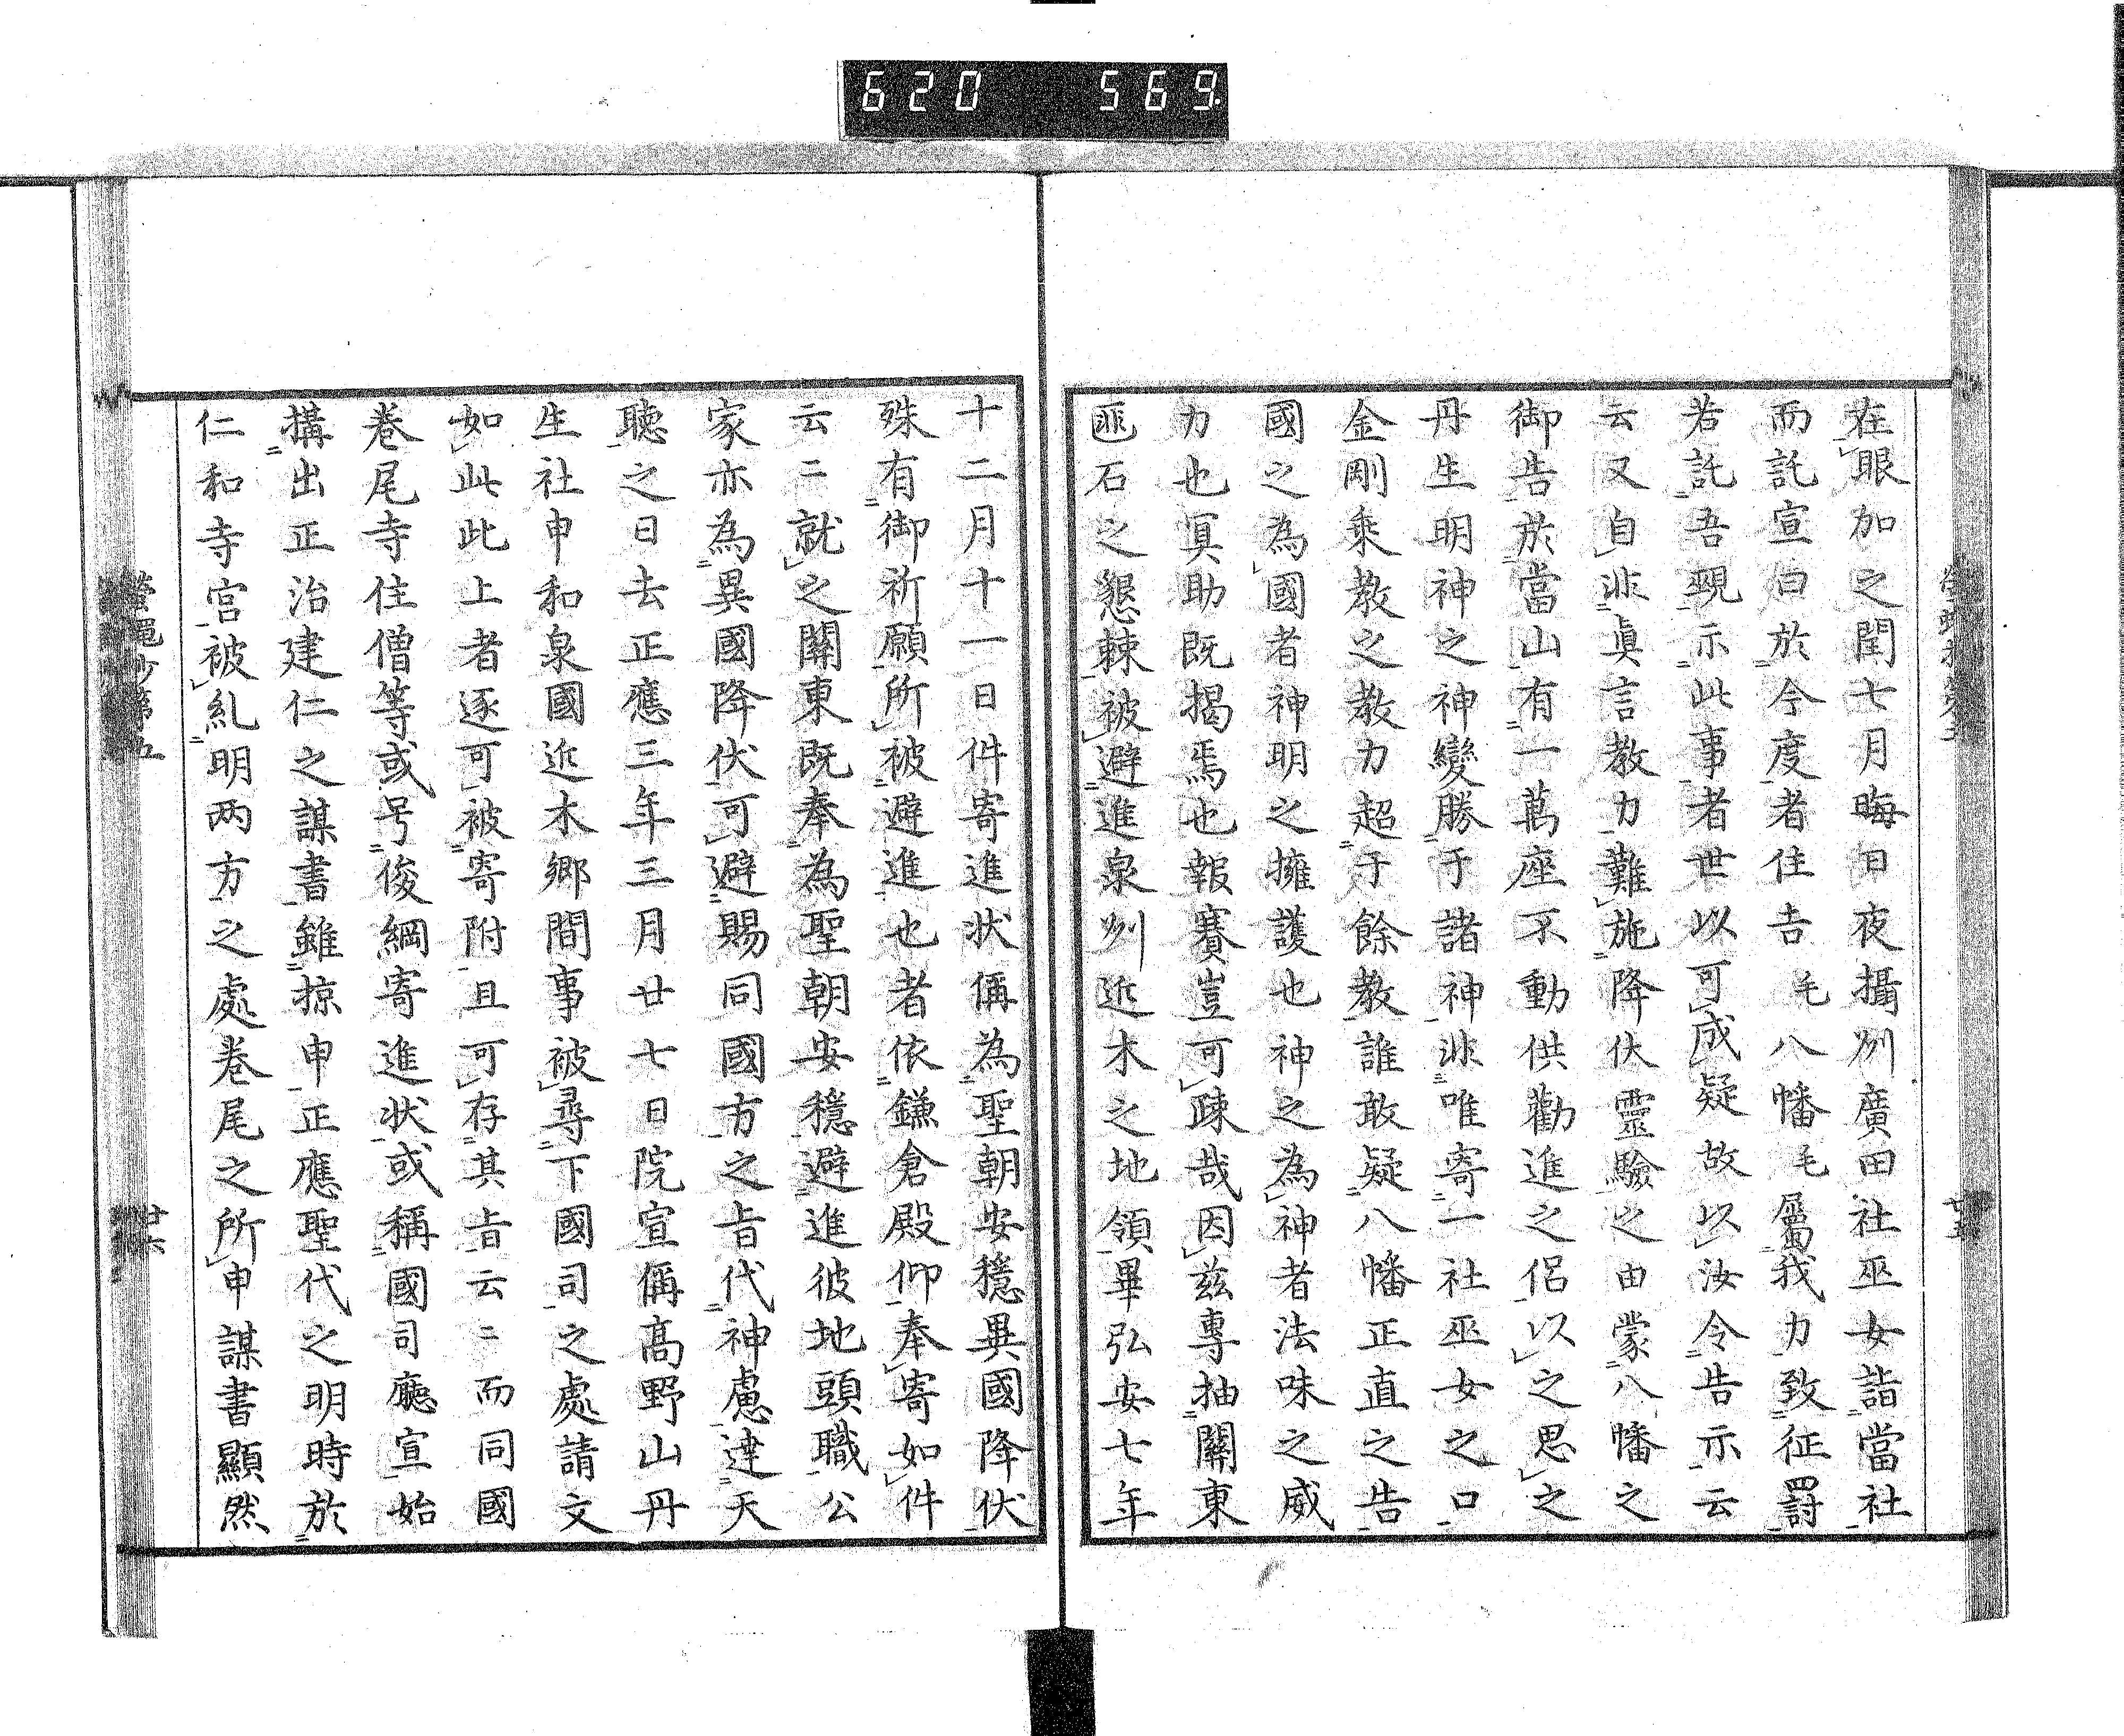 620 569
在眼加之閏七月晦日夜攝州廣田社巫女詣當社
而託宣曰於今度者住吉毛八幡毛屬我力致征罸
若託吾覡示此事者世以可成疑故以汝令告示云
云又自非眞言教力難施降伏靈驗之由蒙八幡之
御告於當山有一萬座不動供勸進之侶以之思之
丹生明神之神變勝于諸神非唯寄一社巫女之口
金剛乘教之教力超于餘教誰敢疑八幡正直之告
國之為國者神明之擁護也神之為神者法味之威
力也冥助既揭焉也報賽豈可疎哉因茲專抽關東
匪石之懇棘被避進泉州近木之地領畢弘安七年
廿五
十二月十一日件寄進状偁為聖朝安穩異國降伏
殊有御祈願所被避進也者依鎌倉殿仰奉寄如件
云〻就之關東既奉為聖朝安穩避進彼地頭職公
家亦為異國降伏可避賜同國方之旨代神慮達天
聽之日去正應三年三月廿七日院宣偁高野山丹
生社申和泉國近木郷間事被尋下國司之處請文
如此此上者逐可被寄附且可存其旨云〻而同國
巻尾寺住僧等或号俊綱寄進状或稱國司廳宣始
搆出正治建仁之謀書雖掠申正應聖代之明時於
仁和寺宮被糺明两方之處巻尾之所申謀書顯然
螢蠅抄第五
廿六